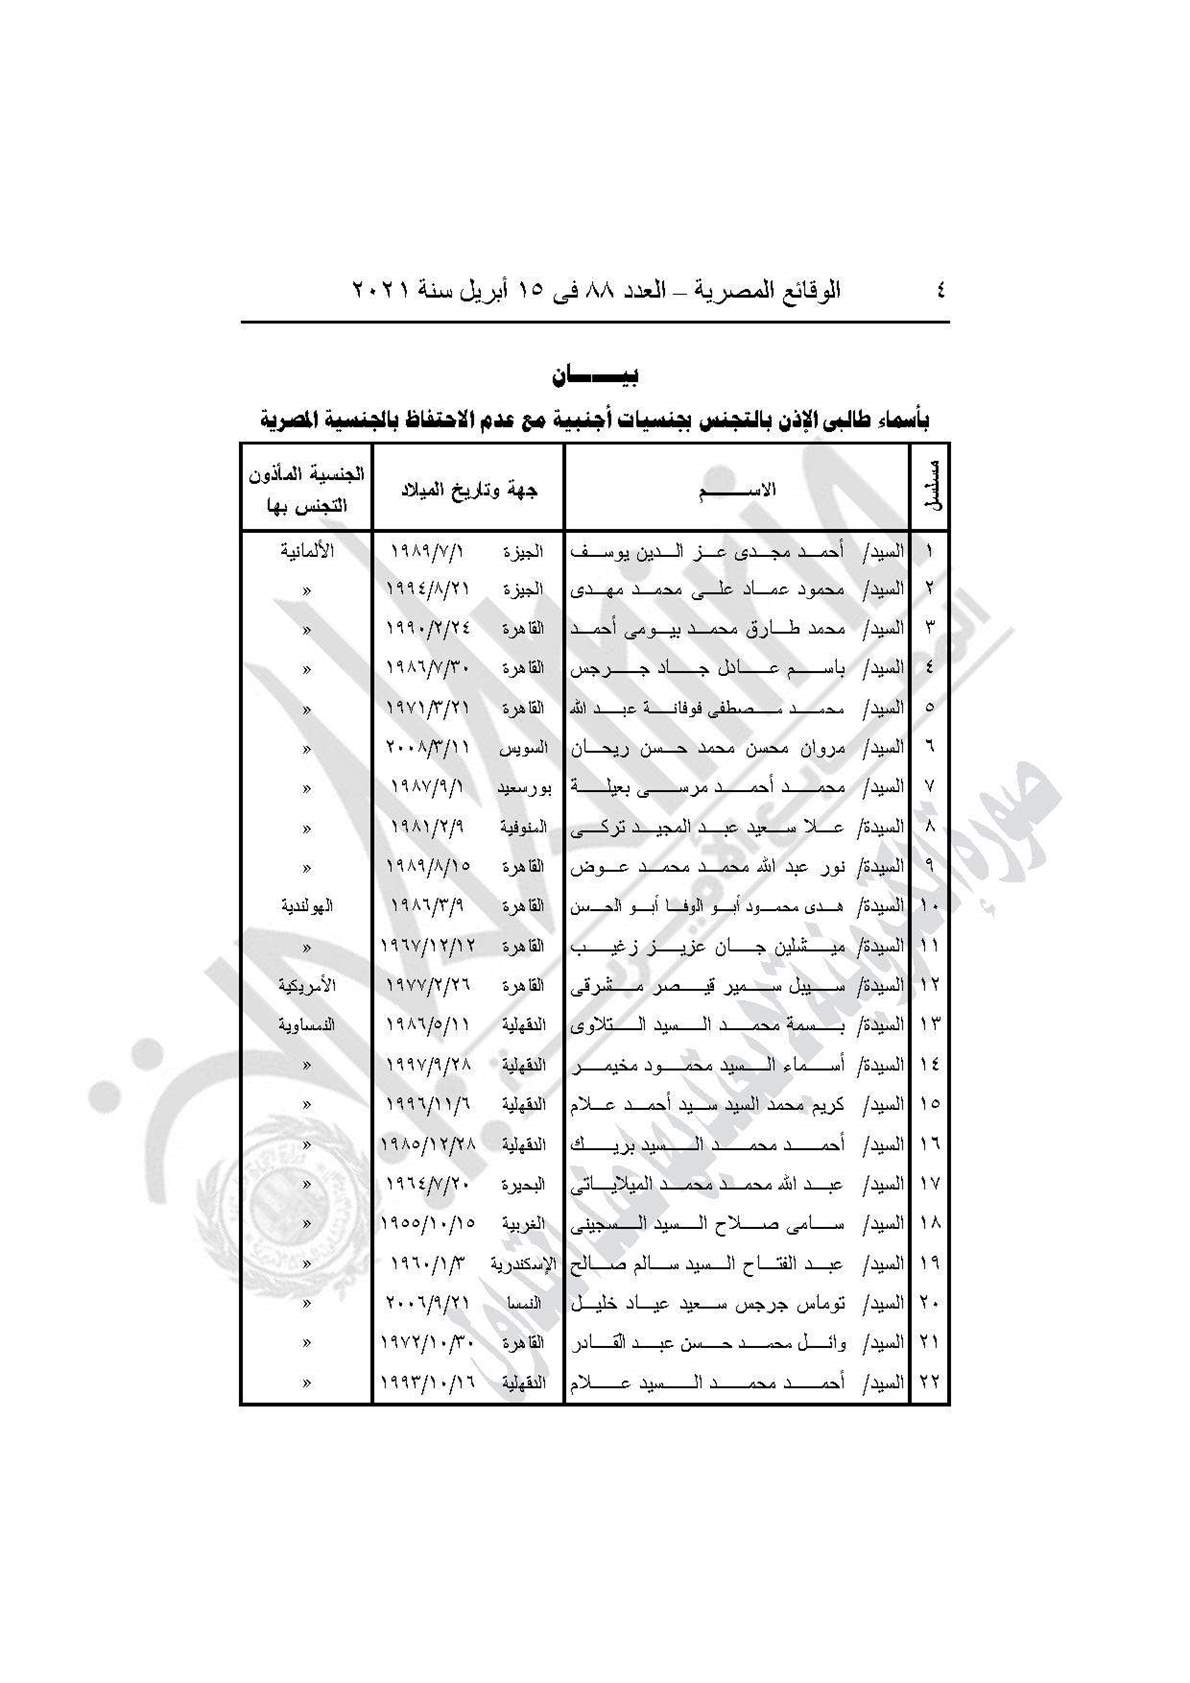 ٤ الوقائع المصرية – العدد ٨٨ فى ١٥ أبريل سنة ٢٠٢١
بيـــــان
بأسماء طالبى الإذن بالتجنس بجنسيات أجنبية مع عدم الاحتفاظ بالجنسية المصرية
مسلسل الاســـــم جهة وتاريخ الميلاد الجنسية المأذون التجنس بها
١ السيد/ أحمد مجدى عز الدين يوسف الجيزة ١٩٨٩/٧/١ الألمانية
٢ السيد/ محمود عماد على محمد مهدى الجيزة ١٩٩٤/٨/٢١ »
٣ السيد/ محمد طارق محمد بيومى أحمد القاهرة ١٩٩٠/٢/٢٤ »
٤ السيد/ باسم عادل جاد جرجس القاهرة ١٩٨٦/٧/٣٠ »
٥ السيد/ محمد مصطفى فوفانة عبد الله القاهرة ١٩٧١/٣/٢١ »
٦ السيد/ مروان محسن محمد حسن ريحان السويس ٢٠٠٨/٣/١١ »
٧ السيد/ محمد أحمد مرسى بعيلة بورسعيد ١٩٨٧/٩/١ »
٨ السيدة/ علا سعيد عبد المجيد تركى المنوفية ١٩٨١/٢/٩ »
٩ السيدة/ نور عبد الله محمد محمد عوض القاهرة ١٩٨٩/٨/١٥ »
١٠ السيدة/ هدى محمود أبو الوفا أبو الحسن القاهرة ١٩٨٦/٣/٩ الهولندية
١١ السيدة/ ميشلين جان عزيز زغيب القاهرة ١٩٦٧/١٢/١٢ »
١٢ السيدة/ سيبل سمير قيصر مشرقى القاهرة ١٩٧٧/٢/٢٦ الأمريكية
١٣ السيدة/ بسمة محمد السيد التلاوى الدقهلية ١٩٨٦/٥/١١ النمساوية
١٤ السيدة/ أسماء السيد محمود مخيمر الدقهلية ١٩٩٧/٩/٢٨ »
١٥ السيد/ كريم محمد السيد سيد أحمد علام الدقهلية ١٩٩٦/١١/٦ »
١٦ السيد/ أحمد محمد السيد بريك الدقهلية ١٩٨٥/١٢/٢٨ »
١٧ السيد/ عبد الله محمد محمد الميلاباتى البحيرة ١٩٦٤/٧/٢٠ »
١٨ السيد/ سامى صلاح السيد السجينى الغربية ١٩٥٥/١٠/١٥ »
١٩ السيد/ عبد الفتاح السيد سالم صالح الإسكندرية ١٩٦٠/١/٣ »
٢٠ السيد/ توماس جرجس سعيد عياد خليل النمسا ٢٠٠٦/٩/٢١ »
٢١ السيد/ وائل محمد حسن عبد القادر القاهرة ١٩٧٢/١٠/٣٠ »
٢٢ السيد/ أحمد محمد السيد علام الدقهلية ١٩٩٣/١٠/١٦ »
صورة إلكترونية لا يعتد بها عند التداول